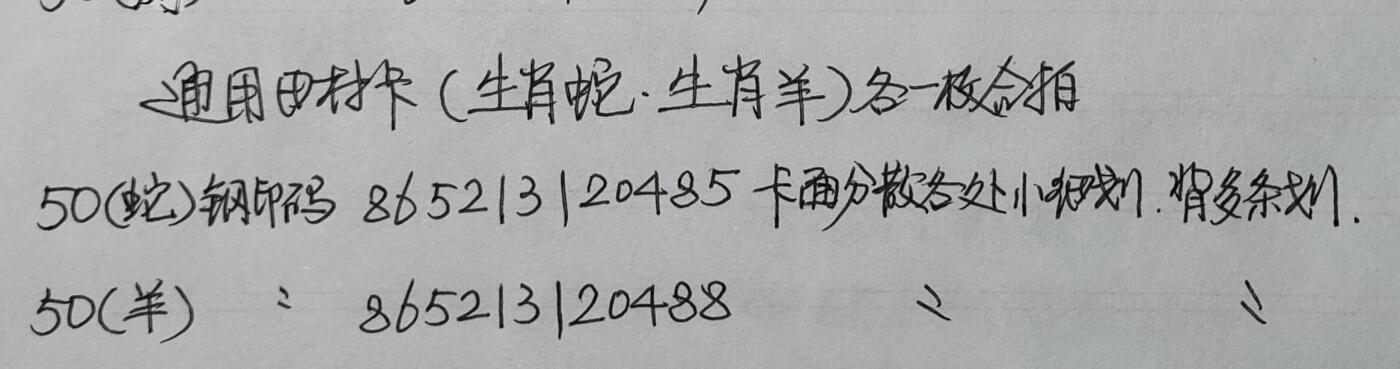 通用田村卡(生肖蛇·生肖羊)各一枚合拍
50(蛇)钢印码 865213120485 卡面分散各处小细划.背多条划.
50(羊) 〃 865213120488 〃 〃